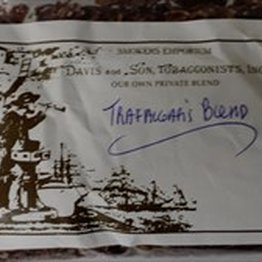 SMOKERS EMPORIUM
DAVIS and SON, TOBACCONISTS, INC
OUR OWN PRIVATE BLEND
TRAFALGAR'S BLEND